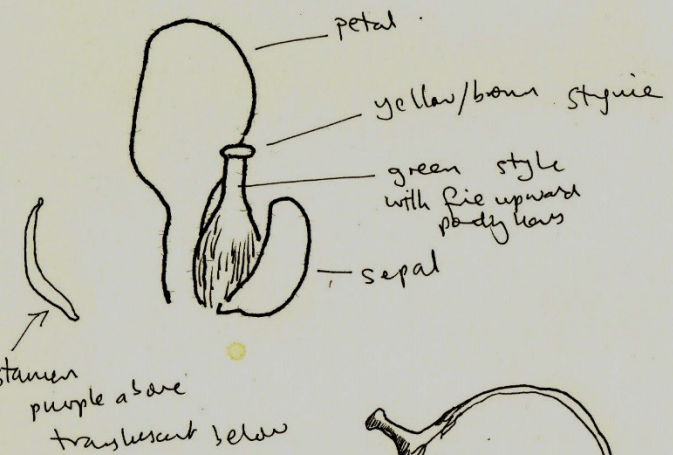 petal
yellow/brown stigma
green style
with fine upward
hairs
sepal
stamen
purple above
translucent below